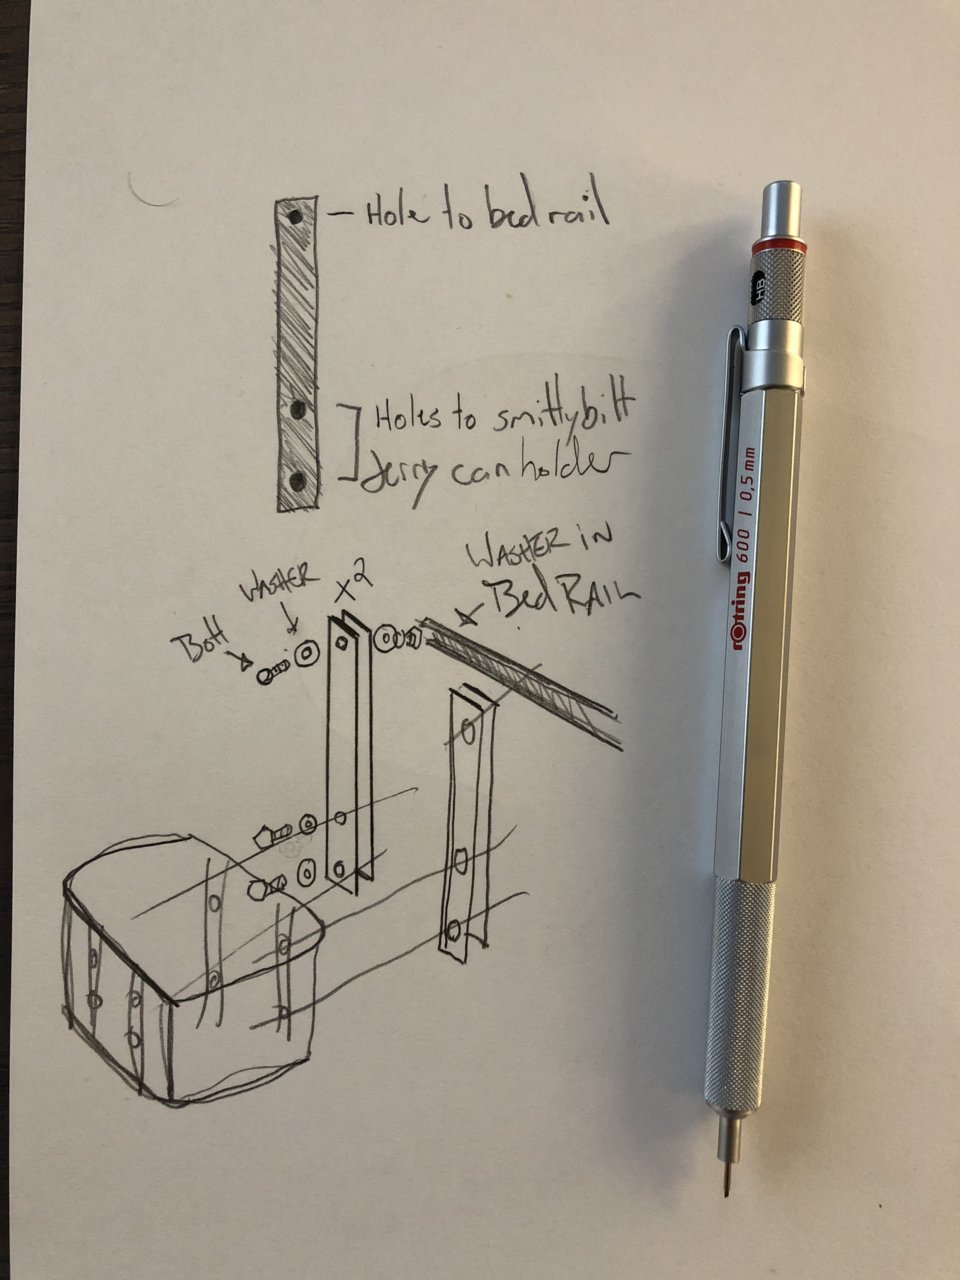 Hole to bed rail
Holes to smittybilt
Jerry can holder
WASHER IN
Bed RAIL
WASHER
x2
Bolt
HB
rOtring 600 | 0,5 mm